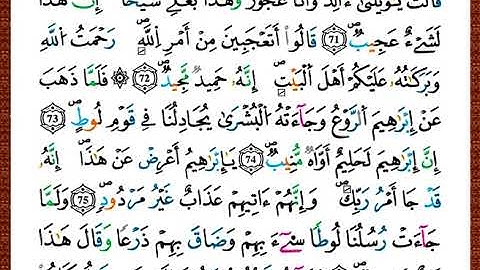 قَالَتْ يَٰوَيْلَتَىٰٓ ءَأَلِدُ وَأَنَا۠ عَجُوزٌ وَهَٰذَا بَعْلِى شَيْخًا ۖ إِنَّ هَٰذَا
لَشَىْءٌ عَجِيبٌ ﴿71﴾ قَالُوٓا۟ أَتَعْجَبِينَ مِنْ أَمْرِ ٱللَّهِ ۖ رَحْمَتُ ٱللَّهِ
وَبَرَكَٰتُهُۥ عَلَيْكُمْ أَهْلَ ٱلْبَيْتِ ۚ إِنَّهُۥ حَمِيدٌ مَّجِيدٌ ﴿72﴾ ۞ فَلَمَّا ذَهَبَ
عَنْ إِبْرَٰهِيمَ ٱلرَّوْعُ وَجَآءَتْهُ ٱلْبُشْرَىٰ يُجَٰدِلُنَا فِى قَوْمِ لُوطٍ ﴿73﴾
إِنَّ إِبْرَٰهِيمَ لَحَلِيمٌ أَوَّٰهٌ مُّنِيبٌ ﴿74﴾ يَٰٓإِبْرَٰهِيمُ أَعْرِضْ عَنْ هَٰذَآ ۖ إِنَّهُۥ
قَدْ جَآ أَمْرُ رَبِّكَ ۖ وَإِنَّهُمْ ءَاتِيهِمْ عَذَابٌ غَيْرُ مَرْدُودٍ ﴿75﴾ وَلَمَّا
جَآءَتْ رُسُلُنَا لُوطًا سِىٓءَ بِهِمْ وَضَاقَ بِهِمْ ذَرْعًا وَقَالَ هَٰذَا